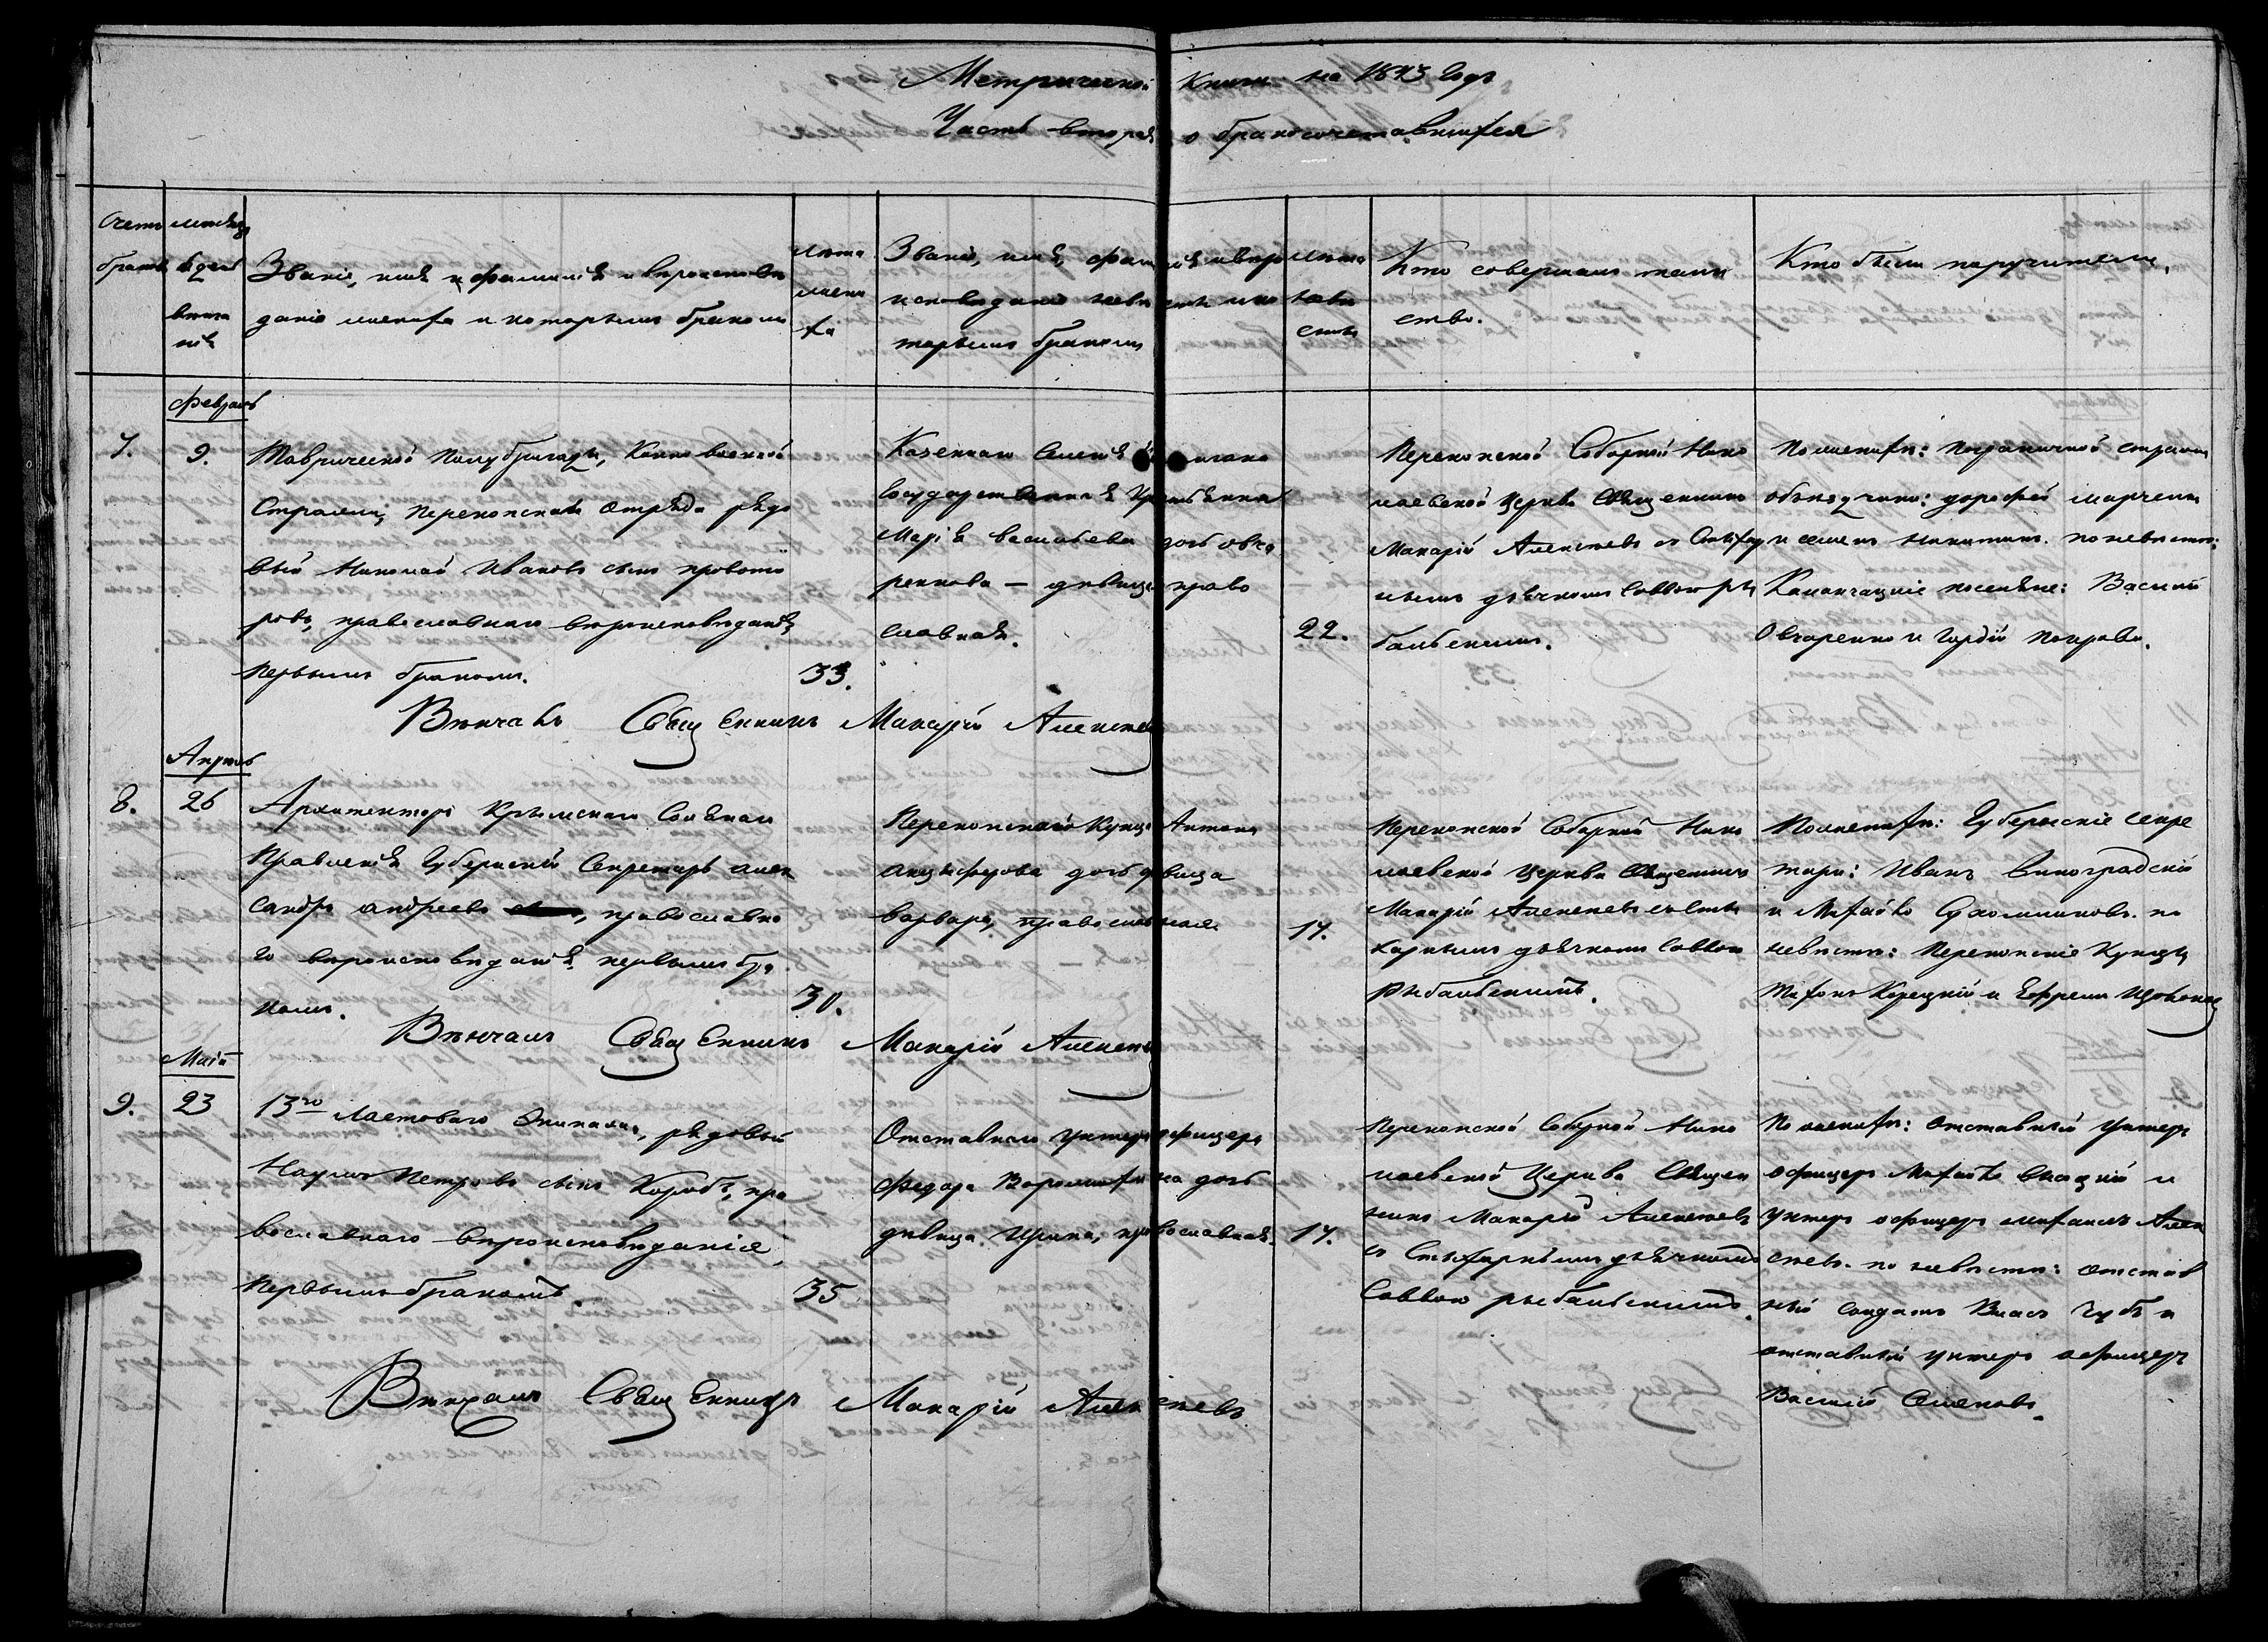 Метрической Книги на 1843 Годъ
Часть вторая о бракосочетавшихся
Счетъ браковъ
месяцъ и день венча ніе
Званіе, имя и фамилія и вероисповѣ
даніе жениха и которымъ бракомъ
Лета
жени
ха
Званіе, имя, фамилія и веро
исповѣданіе невѣсты и ко
торымъ бракомъ
Лета
невѣ
сты
Кто совершалъ таин
ство.
Кто были поручители.
Февраль
7.
9.
Таврической Полубригады, Конно военной
Стражи, Перекопскаго отряда рядо
вый Николай Ивановъ сынъ
ровъ, православнаго вероисповѣданія,
первымъ бракомъ.
33.
Казеннаго Селенія
Государственная
Марія васильева дочь овча
ренкова — дѣвица право
славная.
22.
Перекопской Соборной Нико
лаевской Церкви Священникъ
Макарій Алексѣевъ съ Стихар
нымъ дьячкомъ Саввою Ры
бальскимъ.
По женихѣ: пограничной стражи
объездчики: дорофей марченко
и семенъ никитинъ. по невѣсте:
Каланчацкіе поселяне: Василій
Овчаренко и Гордій
Вѣнчалъ Священникъ Макарій Алексѣевъ
Апрель
8.
26
Архитекторъ Крымскаго Солянаго
Правленія Губернскій Секретарь алек
сандръ андреевъ, православна
го вероисповѣданія первымъ бра
комъ.
30.
Перекопскаго Купца Антона
анцыферова дочь дѣвица
варвара, православная.
17.
Перекопской Соборной Нико
лаевской Церкви Священникъ
Макарій Алексѣевъ съ Сти
харнымъ дьячкомъ Саввою
Рыбальскимъ.
По женихѣ: Губернскіе секре
тари: Иванъ Виноградскій
и Михайло Сухомлиновъ. по
невѣсте: Перекопскіе Купцы
Тихонъ Корецкій и Ефремъ
Вѣнчалъ Священникъ Макарій Алексѣевъ
Май
9.
23
13го Ластоваго Экипажа, рядовый
Наумъ Петровъ сынъ Коробъ, пра
вославнаго вероисповѣданія,
первымъ бракомъ.
35
Отставнаго унтеръ офицера
Федора Ворошихина дочь
дѣвица Ирина, православная.
17.
Перекопской Соборной Нико
лаевской Церкви Священ
никъ Макарій Алексѣевъ
съ Стихарнымъ дьячкомъ
Саввою рыбальскимъ.
По женихѣ: отставный унтеръ
офицеръ Михайло и
унтеръ офицеръ михаилъ Алек
сѣевъ. по невѣсте: отстав
ный солдатъ Власъ Чубъ и
отставный унтеръ офицеръ
Василій Семеновъ.
Вѣнчалъ Священникъ Макарій Алексѣевъ